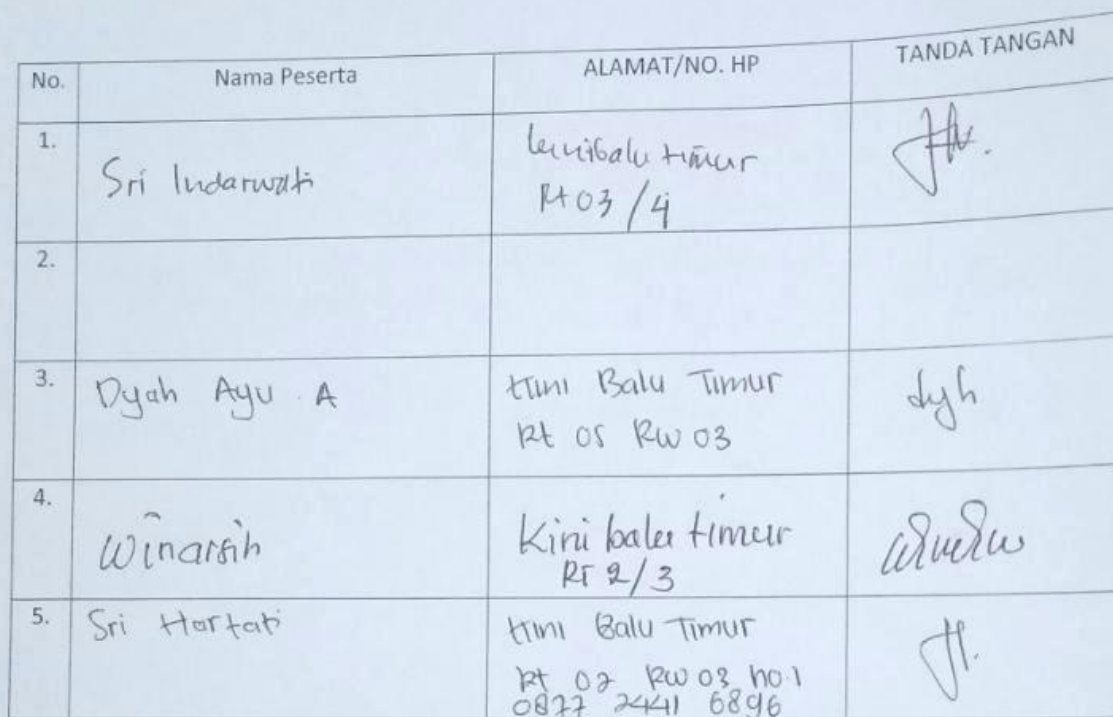 No. Nama Peserta ALAMAT/NO. HP TANDA TANGAN
1. Sri Indarwati
Kinibalu timur
Rt 03/4
2.
3. Dyah Ayu A
Kini Balu Timur
Rt 05 RW 03
4. Winarsih
Kini balu timur
RT 2/3
5. Sri Hartati
Kini Balu Timur
Rt 02 RW 03 no.1
0877 2441 6896